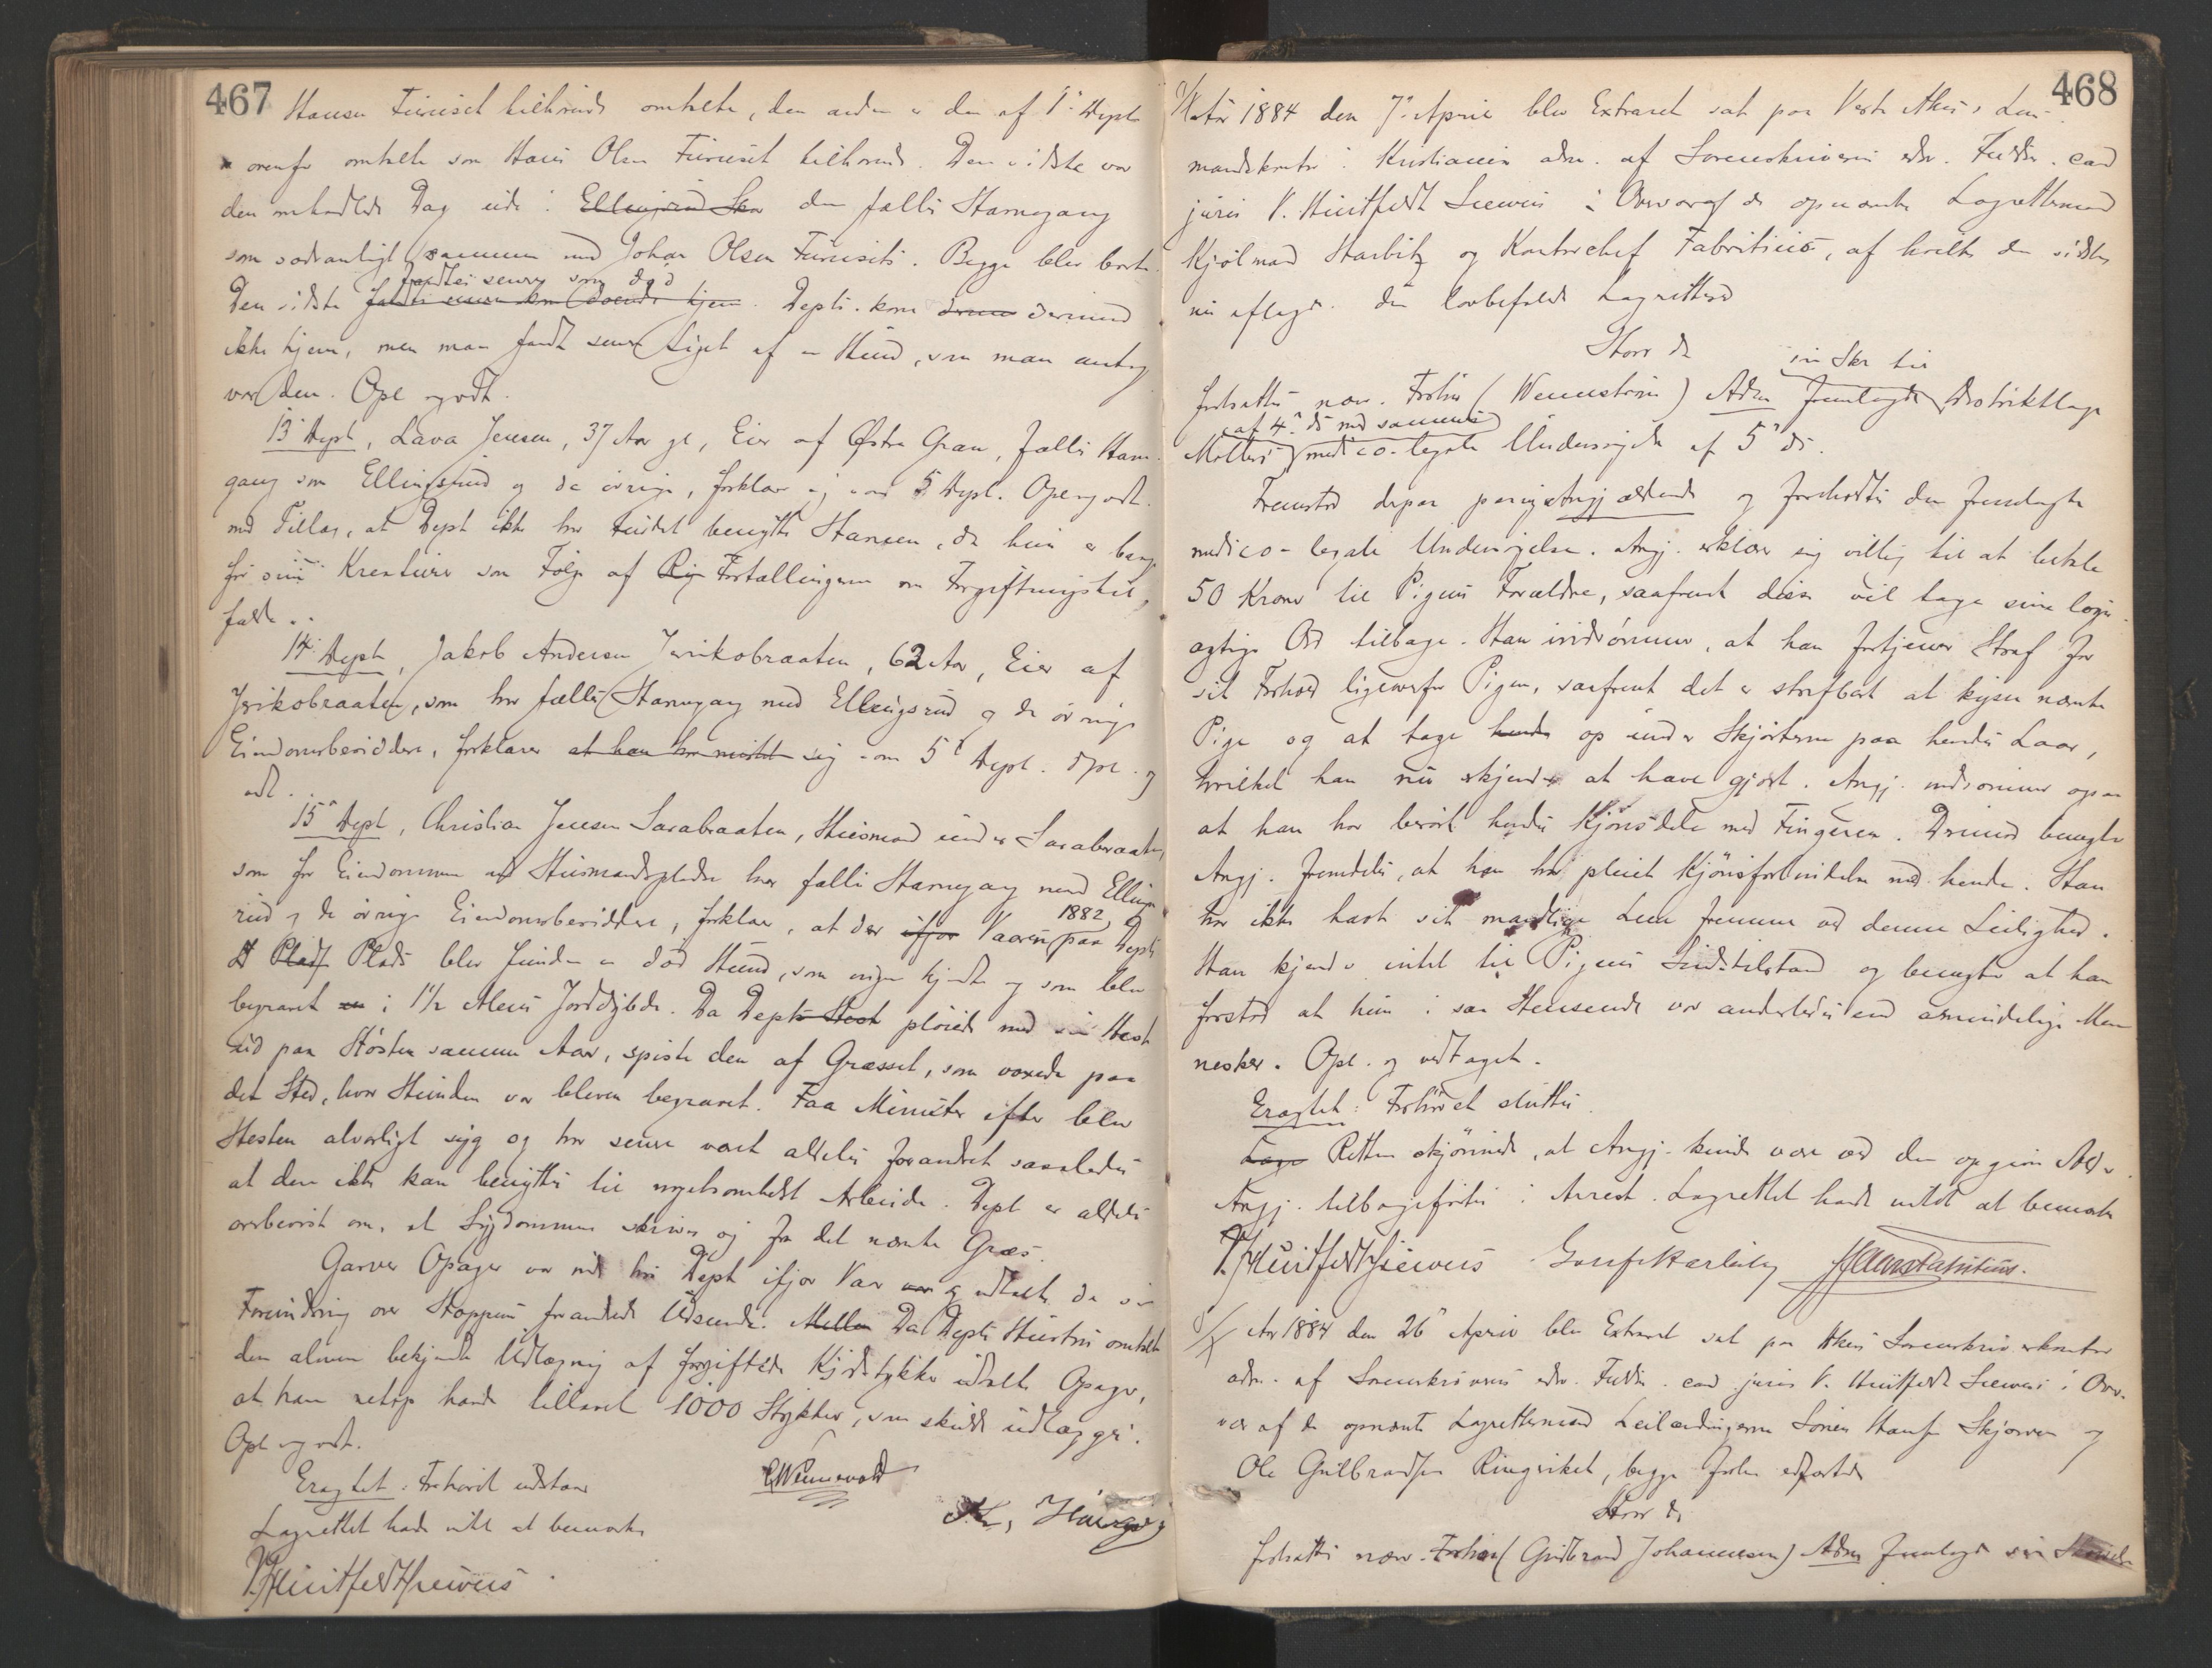 467
Hansen Furuset tilhørende omtalte, den anden er den af 1ste Dept
ovenfor omtalte som Hans Olsen Furuset tilhørende. Den sidste var
den omhandlede Dag ude i Ellingsrud Skov den fælles Havnegang
som sædvanligt sammen med Johan Olsen Furusets. Begge blev borte.
fandtes senere som død
Den sidste hjem. Depts. kom derimod
ikke hjem, men man fandt senere Liget af en Hund, som man antog
var den. Opl. og vedt.
13de Dept, Lava Jensen, 37 Aar gl, Eier af Østre Gran, fælles Havne-
gang som Ellingsrud og de øvrige, forklarer sig som 5 Dept. Opl. og vedt.
med Tillæg, at Dept ikke har turdet benytte Havnen, da hun er bange
for sine Kreaturer som Følge af Fortællingerne om Forgiftningstil-
fælde.
14de Dept, Jakob Andersen Jerikobraaten, 62 Aar, Eier af
Jerikobraaten, som har fælles Havnegang med Ellingsrud og de øvrige
Eiendomsbesiddere, forklarer at han har mistet sig som 5te Dept. Opl. og
vedt.
15de Dept, Christian Jensen Sarabraaten, Husmand under Sarabraaten,
som for Eiendommen og Husmandspladse har fælles Havnegang med Ellings-
rud og de øvrige Eiendomsbesiddere, forklarer, at der ifjor Vaaren 1882 paa Depts
Plads Plads blev funden en død Hund, som ingen kjendte og som blev
begravet en i 1½ Alens Jorddybde. Da Depts Hest pløiede med sin Hest
ud paa Høsten samme Aar, spiste den af Græsset, som voxede paa
det Sted, hvor Hunden var bleven begravet. Faa Minuter efter blev
Hesten alvorligt syg og har senere været aldeles forandret saaledes
at den ikke kan benyttes til nogetsomhelst Arbeide. Dept er aldeles
overbevist om, at Sygdommen skriver sig fra det nævnte Græs.
Garver Opager var ude hos Dept ifjor Vaar og udtalte da sin
Forundring over Hoppens forandrede Udseende. Mellem Da Depts Hustru omtalte
den alene bekjendte Udlægning af forgiftede Kjødstykker udtalte Opager,
at han netop havde tillavet 1000 Stykker, som skulde udlægges.
Opl og vedt.
Eragtet: Forhøret udstaar
Lagrettet havde intet at bemærke
V. Huitfeldt Siewers
468
Aar 1884 den 7de April blev Extraret sat paa Vestre Akers Lens-
mandskontor i Kristiania adm. af Sorenskriverens edsv. Fuldm. cand
juris V. Huitfeldt Siewers i Overvær af de opnævnte Lagrettemænd
Kjølmand Harbitz og Kontorchef Fabritius, af hvilke den sidste
nu aflagde den lovbefalede Lagretteed
Hvor da
fortsattes nær. Forhør (Wennerstrøm) Adm fremlagde sin Skr til Distriktslæge
Møllers af 4de ds med sammes medico-legale Undersøgelse af 5te ds.
Fremstod derpaa paany Angjældende og foreholdtes den fremlagte
medico-legale Undersøgelse. Angj. erklærer sig villig til at betale
50 Kroner til Pigens Forældre, saafremt disse vil tage sine løgn-
agtige Ord tilbage. Han indrømmer, at han fortjener Straf for
sit Forhold ligeoverfor Pigen, saafremt det er strafbart at kysse nævnte
Pige og at tage hende op under Skjørterne paa hendes Laar,
hvilket han nu erkjender at have gjort. Angj. indrømmer ogsaa
at han har berørt hendes Kjønsdele med Fingeren. Derimod benegter
Angj. fremdeles, at han har pleiet Kjønsforbindelse med hende. Han
har ikke havt sit mandlige Lem fremme ved denne Leilighed.
Han kjender intet til Pigens Sindstilstand og benegter at han
forstod at hun i saa Henseende var anderledes end almindelige Men-
nesker. Opl. og vedtaget.
Eragtet: Forhøret sluttes.
Retten skjønnede, at Angj. kunde være ved den opgivne Alder.
Angj. tilbageførtes i Arrest. Lagrettet havde intet at bemærke
V. Huitfeldt Siewers
Aar 1884 den 26de April blev Extraret sat paa Akers Sorenskriverkontor
adm. af Sorenskriverens edsv. Fuldm. cand juris V. Huitfeldt Siewers i Over-
vær af de opnævnte Lagrettemænd Leilændingerne Søren Hansen Skjørven og
Ole Gulbrandsen Ringriket, begge forhen edfæstede
Hvor da
fortsattes nær. Forhør (Gulbrand Johannesen) Adm fremlagde sin Skrivelse